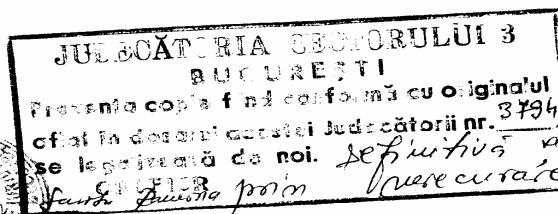 JUDECĂTORIA SECTORULUI 3
BUCUREŞTI
Prezenta copie fiind conformă cu originalul
aflat în dosarul acestei Judecătorii nr. 3794
se legalizează de noi. definitivă
GREFIER prin nerecurare